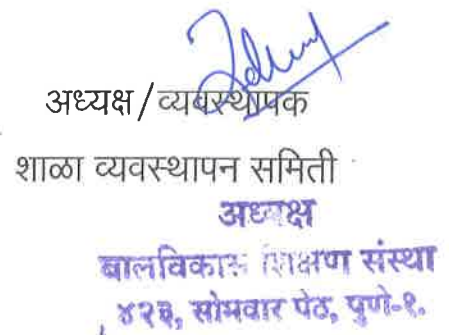 अध्यक्ष/व्यवस्थापक
शाळा व्यवस्थापन समिती
अध्यक्ष
बालविकास शिक्षण संस्था
४२३, सोमवार पेठ, पुणे-१.